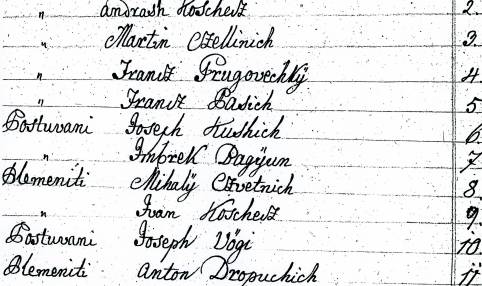 " Andrash Koschecz 2.
" Martin Czellinich 3.
" Francz Prugovechkÿ 4
" Francz Pasich 5
Postuvani Joseph Kushich 6.
" Imbrek Dagÿun 7
Plemeniti Mihalÿ Czvetnich 8.
" Ivan Koschecz 9.
Postuvani Joseph Vögi 10.
Plemeniti Anton Dropuchich 11